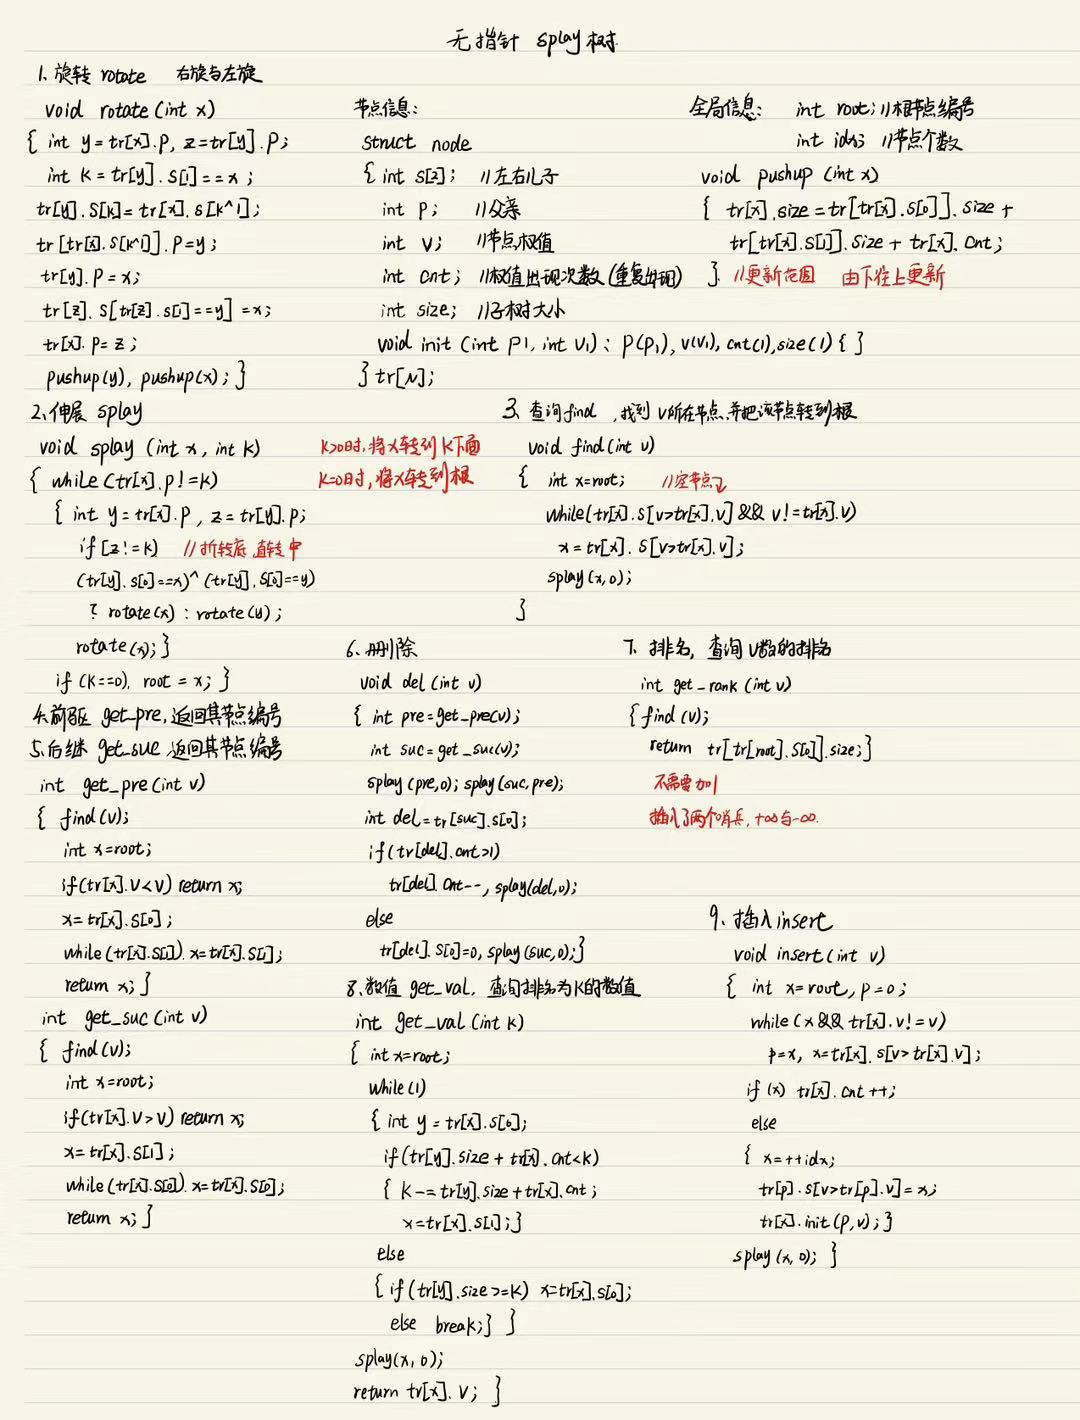 无指针 splay树
1、旋转 rotate 右旋与左旋
void rotate(int x)
{ int y=tr[x].p, z=tr[y].p;
int k=tr[y].s[1]==x;
tr[y].s[k]=tr[x].s[k^1];
tr[tr[x].s[k^1]].p=y;
tr[y].p=x;
tr[z].s[tr[z].s[1]==y]=x;
tr[x].p=z;
pushup(y), pushup(x); }
节点信息:
struct node
{ int s[2]; //左右儿子
int p; //父亲
int v; //节点权值
int cnt; //权值出现次数(重复出现)
int size; //子树大小
void init(int p1, int v1): p(p1), v(v1), cnt(1), size(1) { }
} tr[N];
全局信息: int root; //根节点编号
int idx; //节点个数
void pushup(int x)
{ tr[x].size=tr[tr[x].s[0]].size+
tr[tr[x].s[1]].size+tr[x].cnt;
}. //更新范围 由下往上更新
2、伸展 splay
void splay (int x, int k) k>0时,将x转到k下面
{ while(tr[x].p!=k) k=0时,将x转到根
{ int y=tr[x].p, z=tr[y].p;
if(z!=k) //折转底,直转中
(tr[y].s[0]==x)^(tr[y].s[0]==y)
? rotate(x) : rotate(y);
rotate(x); }
if(k==0), root=x; }
3、查询find,找到v所在节点,并把该节点转到根
void find(int v)
{ int x=root; //空节点
while(tr[x].s[v>tr[x].v] && v!=tr[x].v)
x=tr[x].s[v>tr[x].v];
splay(x,0);
}
4、前驱 get_pre,返回其节点编号
5、后继 get_suc 返回其节点编号
int get_pre(int v)
{ find(v);
int x=root;
if(tr[x].v<v) return x;
x=tr[x].s[0];
while(tr[x].s[1]). x=tr[x].s[1];
return x; }
int get_suc(int v)
{ find(v);
int x=root;
if(tr[x].v>v) return x;
x=tr[x].s[1];
while(tr[x].s[0]). x=tr[x].s[0];
return x; }
6、删除
void del(int v)
{ int pre=get_pre(v);
int suc=get_suc(v);
splay(pre,0); splay(suc,pre);
int del=tr[suc].s[0];
if(tr[del].cnt>1)
tr[del].cnt--, splay(del,0);
else
tr[del].s[0]=0, splay(suc,0); }
7、排名,查询v数的排名
int get_rank(int v)
{ find(v);
return tr[tr[root].s[0]].size; }
不需要加1
插入了两个哨兵,+∞与-∞.
8、数值 get_val, 查询排名为k的数值
int get_val(int k)
{ int x=root;
while(1)
{ int y=tr[x].s[0];
if(tr[y].size+tr[x].cnt<k)
{ k-=tr[y].size+tr[x].cnt;
x=tr[x].s[1]; }
else
{ if(tr[y].size>=k) x=tr[x].s[0];
else break; } }
splay(x,0);
return tr[x].v; }
9、插入insert
void insert(int v)
{ int x=root, p=0;
while(x && tr[x].v!=v)
p=x, x=tr[x].s[v>tr[x].v];
if(x) tr[x].cnt++;
else
{ x=++idx;
tr[p].s[v>tr[p].v]=x;
tr[x].init(p,v); }
splay(x,0); }